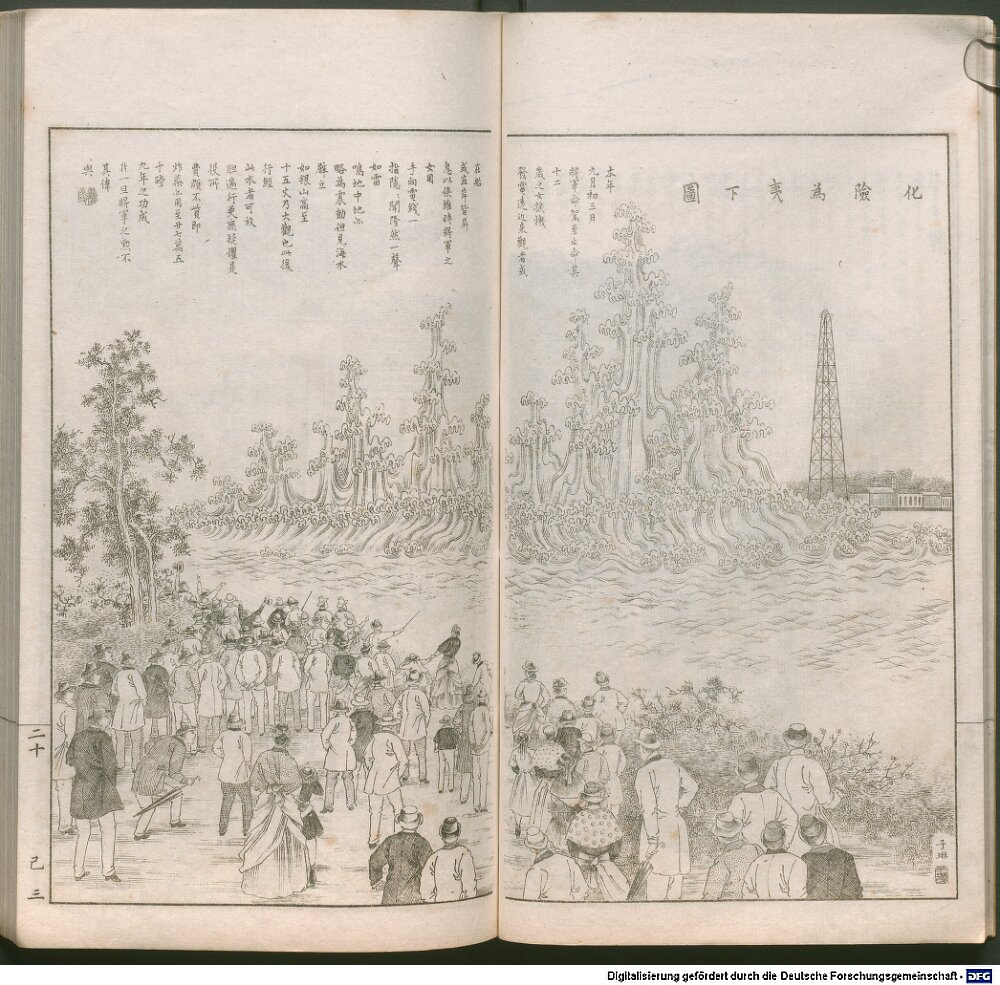 化險為夷下圖
本年
九月初三日
將軍命駕至止命其
十二
歲之女撥機
發電遠近來觀者或
在船
或在岸皆屏
息以俟維時將軍之
女用
手向電綫一
指隱〻聞隆然一聲
如雷
鳴地中地亦
略為震動但見海水
壁立
如銀山高至
十五丈乃大觀也此後
行經
此水者可放
胆過行更無疑懼是
役所
費頗不貲即
炸藥亦用至廿七萬五
千磅
九年之功成
於一旦將軍之勲不
其偉
與
子琳
二十
己三
Digitalisierung gefördert durch die Deutsche Forschungsgemeinschaft - DFG